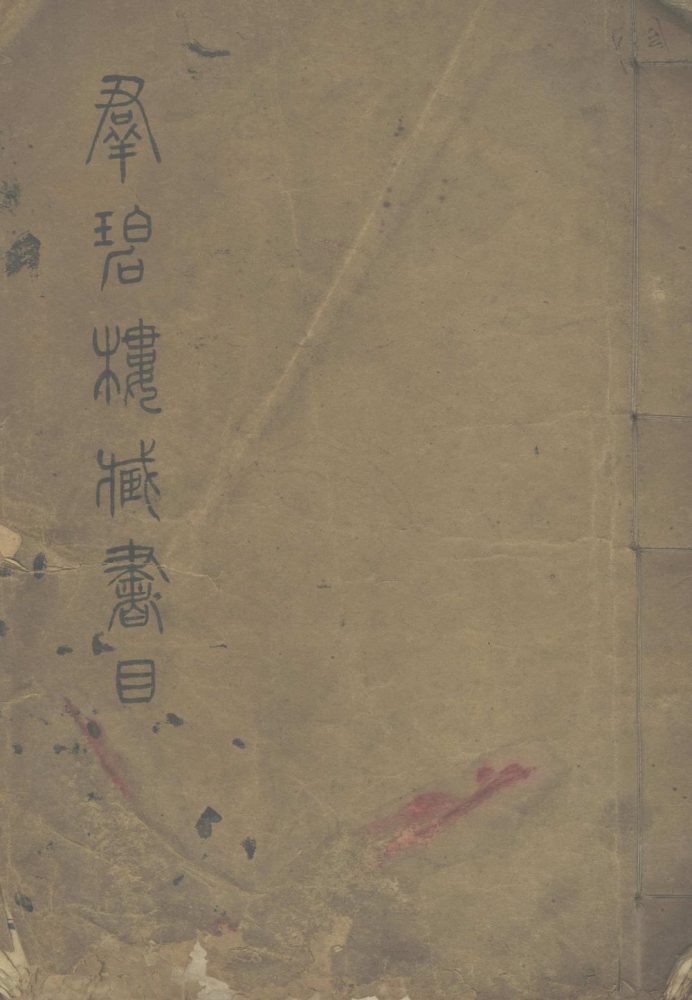 羣碧樓藏書目